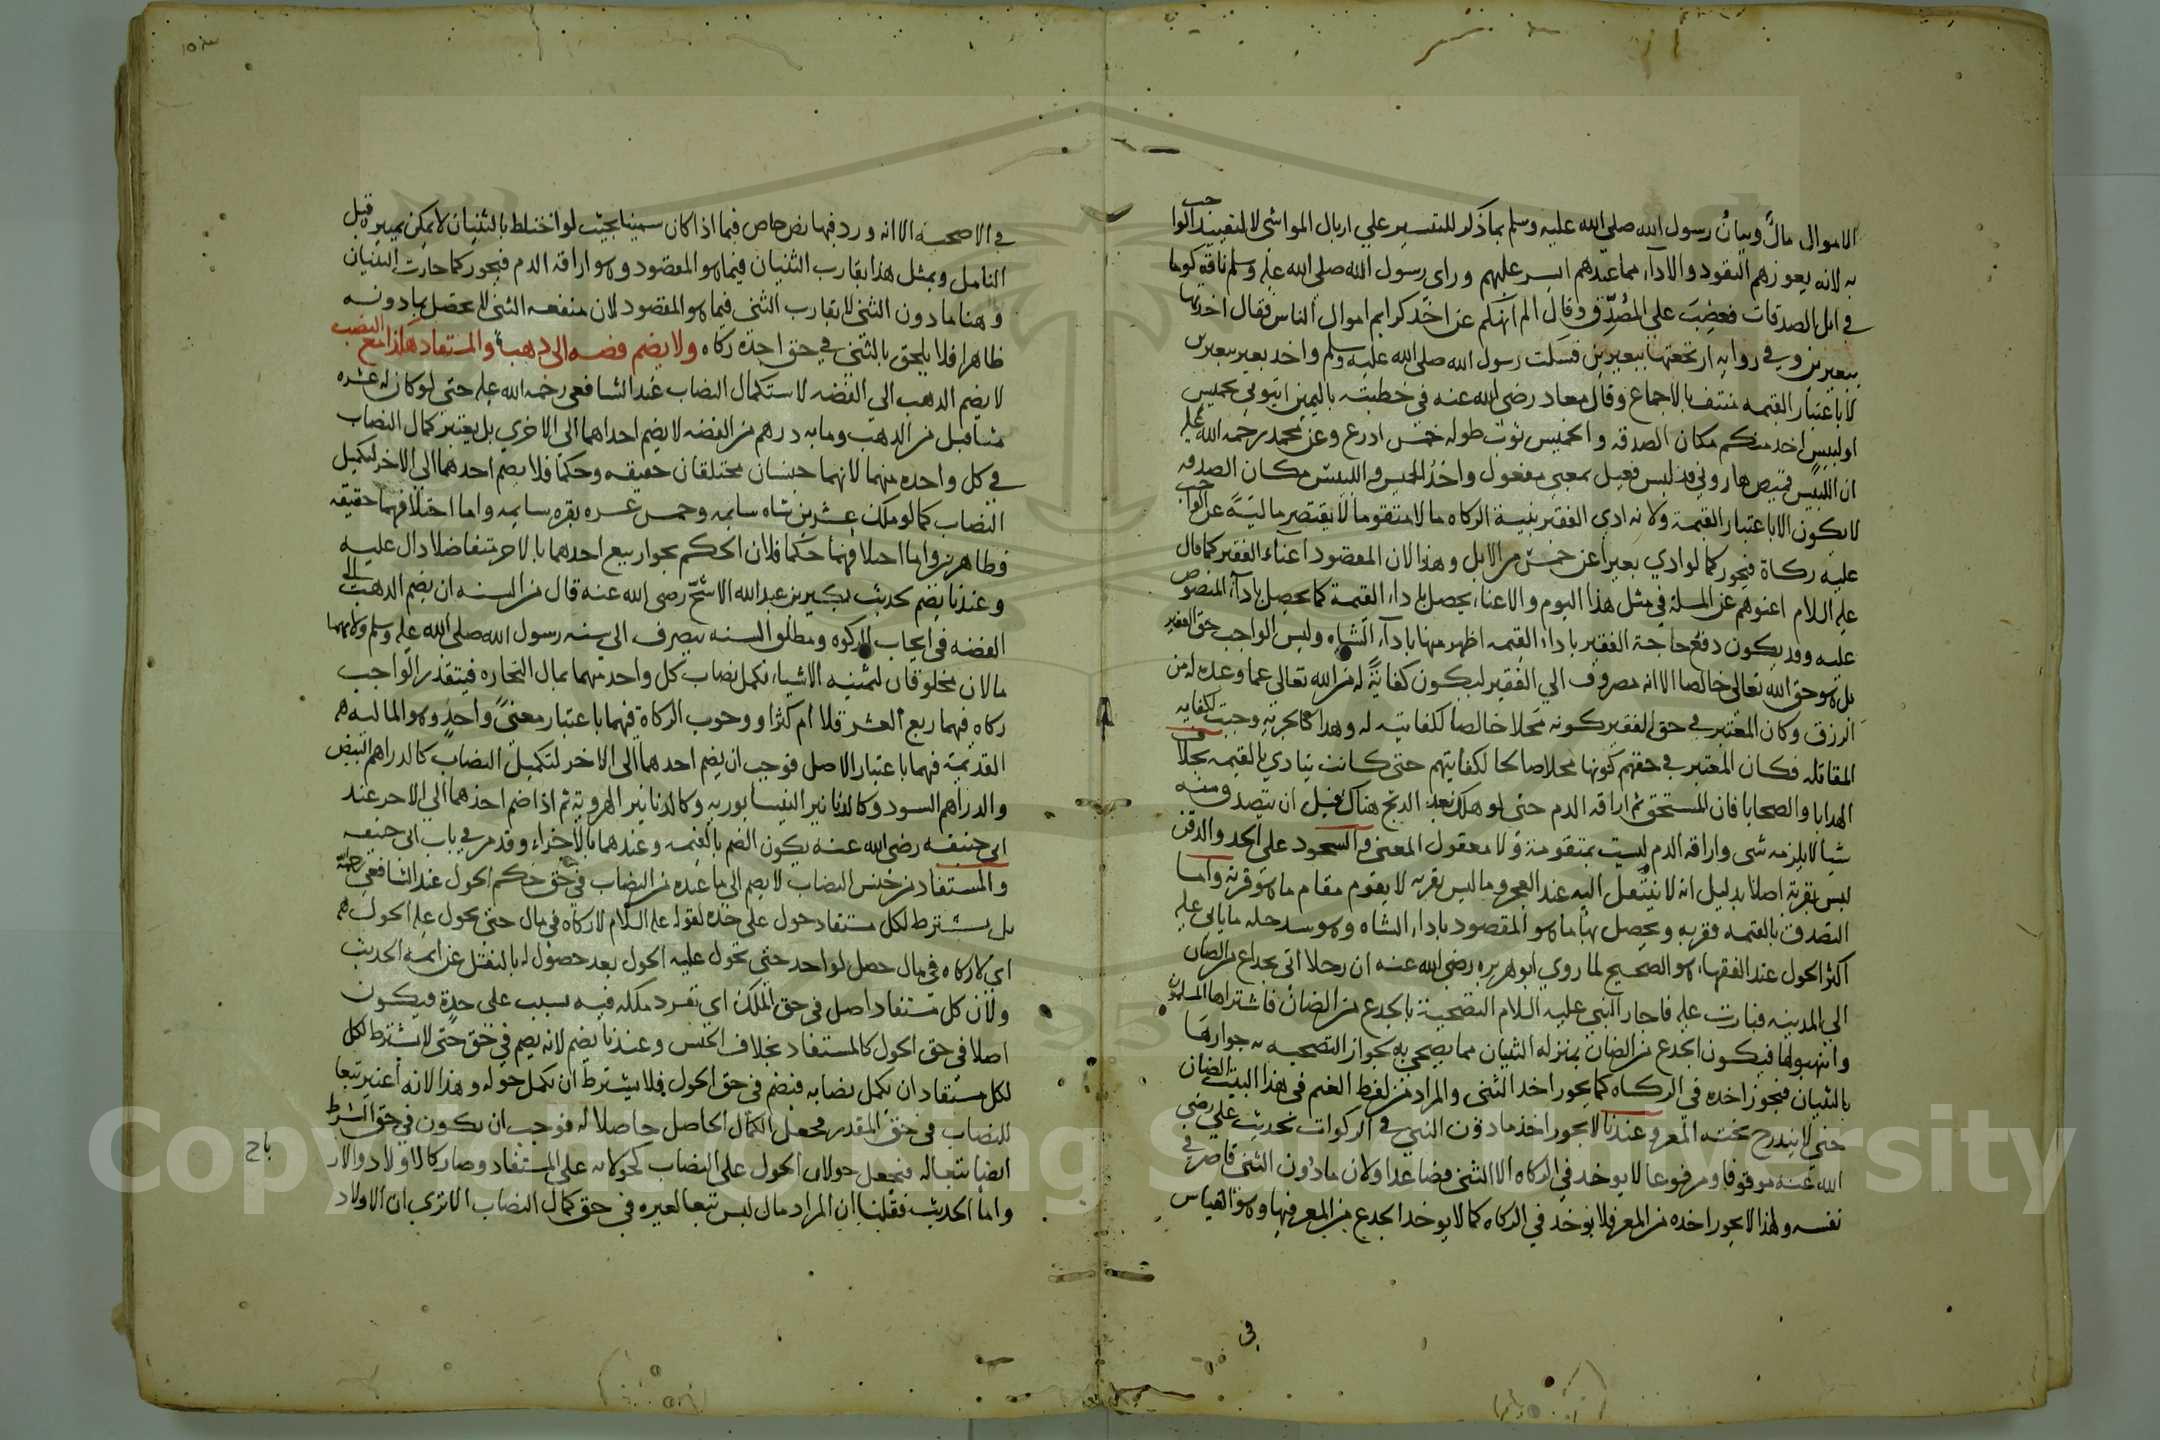 الاموال مال وبيان رسول الله صلى الله عليه وسلم بما ذكر للتيسير علي ارباب المواشي لا لتقييد الواجب
به لانه يعوزهم النقود والادآء مما عندهم ايسر عليهم وراى رسول الله صلى الله عليه وسلم ناقة كوما
في ابل الصدقات فغضب على المصدق وقال الم انهكم عن اخذ كرايم اموال الناس فقال اخذتها
ببعيرين وفي رواية ارتجعتها ببعيرين فسكت رسول الله صلى الله عليه وسلم واخذ بعير ببعيرين
لا باعتبار القيمه منتف بالاجماع وقال معاذ رضى الله عنه في خطبته باليمن ايتوني بخميس
او لبيس اخذ منكم مكان الصدقه والخميس ثوب طوله خمس اذرع وعن محمد رحمه الله عليه
ان اللبيس قميص هاروني وقد لبس فعيل بمعنى مفعول واخذ الخميس واللبيس مكان الصدقه
لا يكون الا باعتبار القيمة ولانه ادي الفقير بنية الزكاه مالا متقوما لا يقتصر ماليته عن الواجب
عليه زكاة فيجوز كما لو ادي بعيرا عن خمس من الابل وهذا لان المقصود اغناء الفقير كما قال
عليه السلام اغنوهم عن المسلة في مثل هذا اليوم والاغناء يحصل باداء القيمة كما يحصل باداء المنصوص
عليه وقد يكون دفع حاجة الفقير باداء القيمه اظهر منها باداء الشاه وليس الواجب حق الفقير
بل هو حق الله تعالى خالصا الا انه مصروف الي الفقير ليكون كفاية له من الله تعالى عما وعده له من
الرزق وكان المعتبر في حق الفقير كونه محلا خالصا لكفايته له وهذا كالجزية وجبت لكفايه
المقاتله فكان المعتبر في حقهم كونها محلا صالحا لكفايتهم حتى كانت تتادي بالقيمه بخلاف
الهدايا والضحايا فان المستحق ثم اراقه الدم حتى لو هلك بعد الذبح هناك قبل ان يتصدق منه
شيا لا يلزمه شى واراقه الدم ليست بمتقومة ولا معقول المعنى والسجود على الخد والذقن
ليس بقربة اصلا بدليل انه لا يتنفل اليه عند العجز وما ليس بقربه لا يقوم مقام ما هو قربة واما
التصدق بالقيمه فقربه ويحصل بها ما هو المقصود باداء الشاه وهو سد خله ما ياتي عليه
اكثر الحول عند الفقهاء هو الصحيح لما روي ابو هريره رضى الله عنه ان رجلا اتى بجذاع من الضان
الى المدينه فبارت عليه فاجاز النبي عليه السلام التضحية بالجذع من الضان فاشتراها المسلمون
وانتهبوها فيكون الجذع من الضان بمنزله الثنيان مما يضحي به بجواز التضحيه به جوازها
بالثنيان فيجوز اخذه في الزكاه كما يجوز اخذ الثنى والمراد من لفظ الغنم في هذا البيت الضان
حتي لا يندرج تحته المعز وعندنا لا يجوز اخذ مادون الثني في الزكوات لحديث علي رضي
الله عنه موقوفا ومرفوعا لا يوخذ في الزكاه الا الثنى فصاعدا ولان مادون الثنى قاصر في
نفسه ولهذا لا يجوز اخذه من المعز فلا يوخذ في الزكاه كما لا يوخذ الجذع من المعز فيها وهو القياس
في
في الاضحية الا انه ورد فيها نص خاص فيما اذا كان سمينا بحيث لو اختلط بالثنيان لا يمكن تمييزه قبل
التامل وبمثل هذا يقارب الثنيان فيما هو المقصود وهو اراقه الدم فيجوز كما جازت الثنيان
وهنا مادون الثنى لا يقارب الثنى فيما هو المقصود لان منفعه الثنى لا تحصل بما دونه
ظاهرا فلا يلحق بالثنى في حق اخذه زكاه ولا يضم فضه الى ذهب والمستفاد هكذا مع النصب
لا يضم الذهب الى الفضه لاستكمال النصاب عند الشافعى رحمه الله عليه حتى لو كان له عشره
مثاقيل من الذهب ومايه درهم من الفضه لا يضم احداهما الى الاخري بل يعتبر كمال النصاب
في كل واحده منهما لانهما جنسان مختلفان حقيقه وحكما فلا يضم احدهما الى الاخر لتكميل
النصاب كما لو ملك عشرين شاه سايمه وخمس عشره بقره سايمه واما اختلافهما حقيقه
فظاهر واما اختلافهما حكما فلان الحكم بجواز بيع احدهما بالاخر متفاضلا دال عليه
وعندنا يضم لحديث بكير بن عبد الله الاشج رضى الله عنه قال من السنه ان يضم الذهب الى
الفضه في ايجاب الزكوه ومطلق السنه ينصرف الى سنه رسول الله صلى الله عليه وسلم ولانهما
مالان مخلوقان لثمنيه الاشياء تكمل نصاب كل واحد منهما بمال التجاره فيتقدر الواجب
زكاه فيهما ربع العشر قلا ام كثرا ووجوب الزكاة فيهما باعتبار معنى واحد وهو الماليه
القديمة فيهما باعتبار الاصل فوجب ان يضم احدهما الى الاخر لتكميل النصاب كالدراهم البيض
والدراهم السود وكالدنانير النيسابوريه وكالدنانير الهروية ثم اذا ضم احدهما الى الاخر عند
ابى حنيفه رضى الله عنه يكون الضم بالقيمه وعندهما بالاجزاء وقد مر في باب ابى حنيفه
والمستفاد من جنس النصاب لا يضم الى ما عنده من النصاب في حق حكم الحول عند الشافعى
بل يشترط لكل مستفاد حول على حده لقوله عليه السلام لا زكاه في مال حتى يحول عليه الحول
اى لا زكاه في مال حصل لواحد حتى يحول عليه الحول بعد حصوله بالنقل عن ايمه الحديث
ولان كل مستفاد اصل في حق الملك اى تفرد مملكه فيه بسبب على حدة فيكون
اصلا في حق الحول كالمستفاد بخلاف الجنس وعندنا يضم لانه يضم في حق حتى لا يشترط لكل
لكل مستفاد ان يكمل نصابه فيضم في حق الحول فلا يشترط ان يكمل حوله وهذا لانه اعتبر تبعا
للنصاب في حق المقدر فجعل الكمال الحاصل حاصلا له فوجب ان يكون في حق الشرط
ايضا تبعا له فيجعل حولان الحول على النصاب كحولانه على المستفاد وصار كالاولاد والار
واما الحديث فقلنا ان المراد مال ليس تبعا لغيره في حق كمال النصاب الا ترى ان الاولاد
Copyright © King Saud University